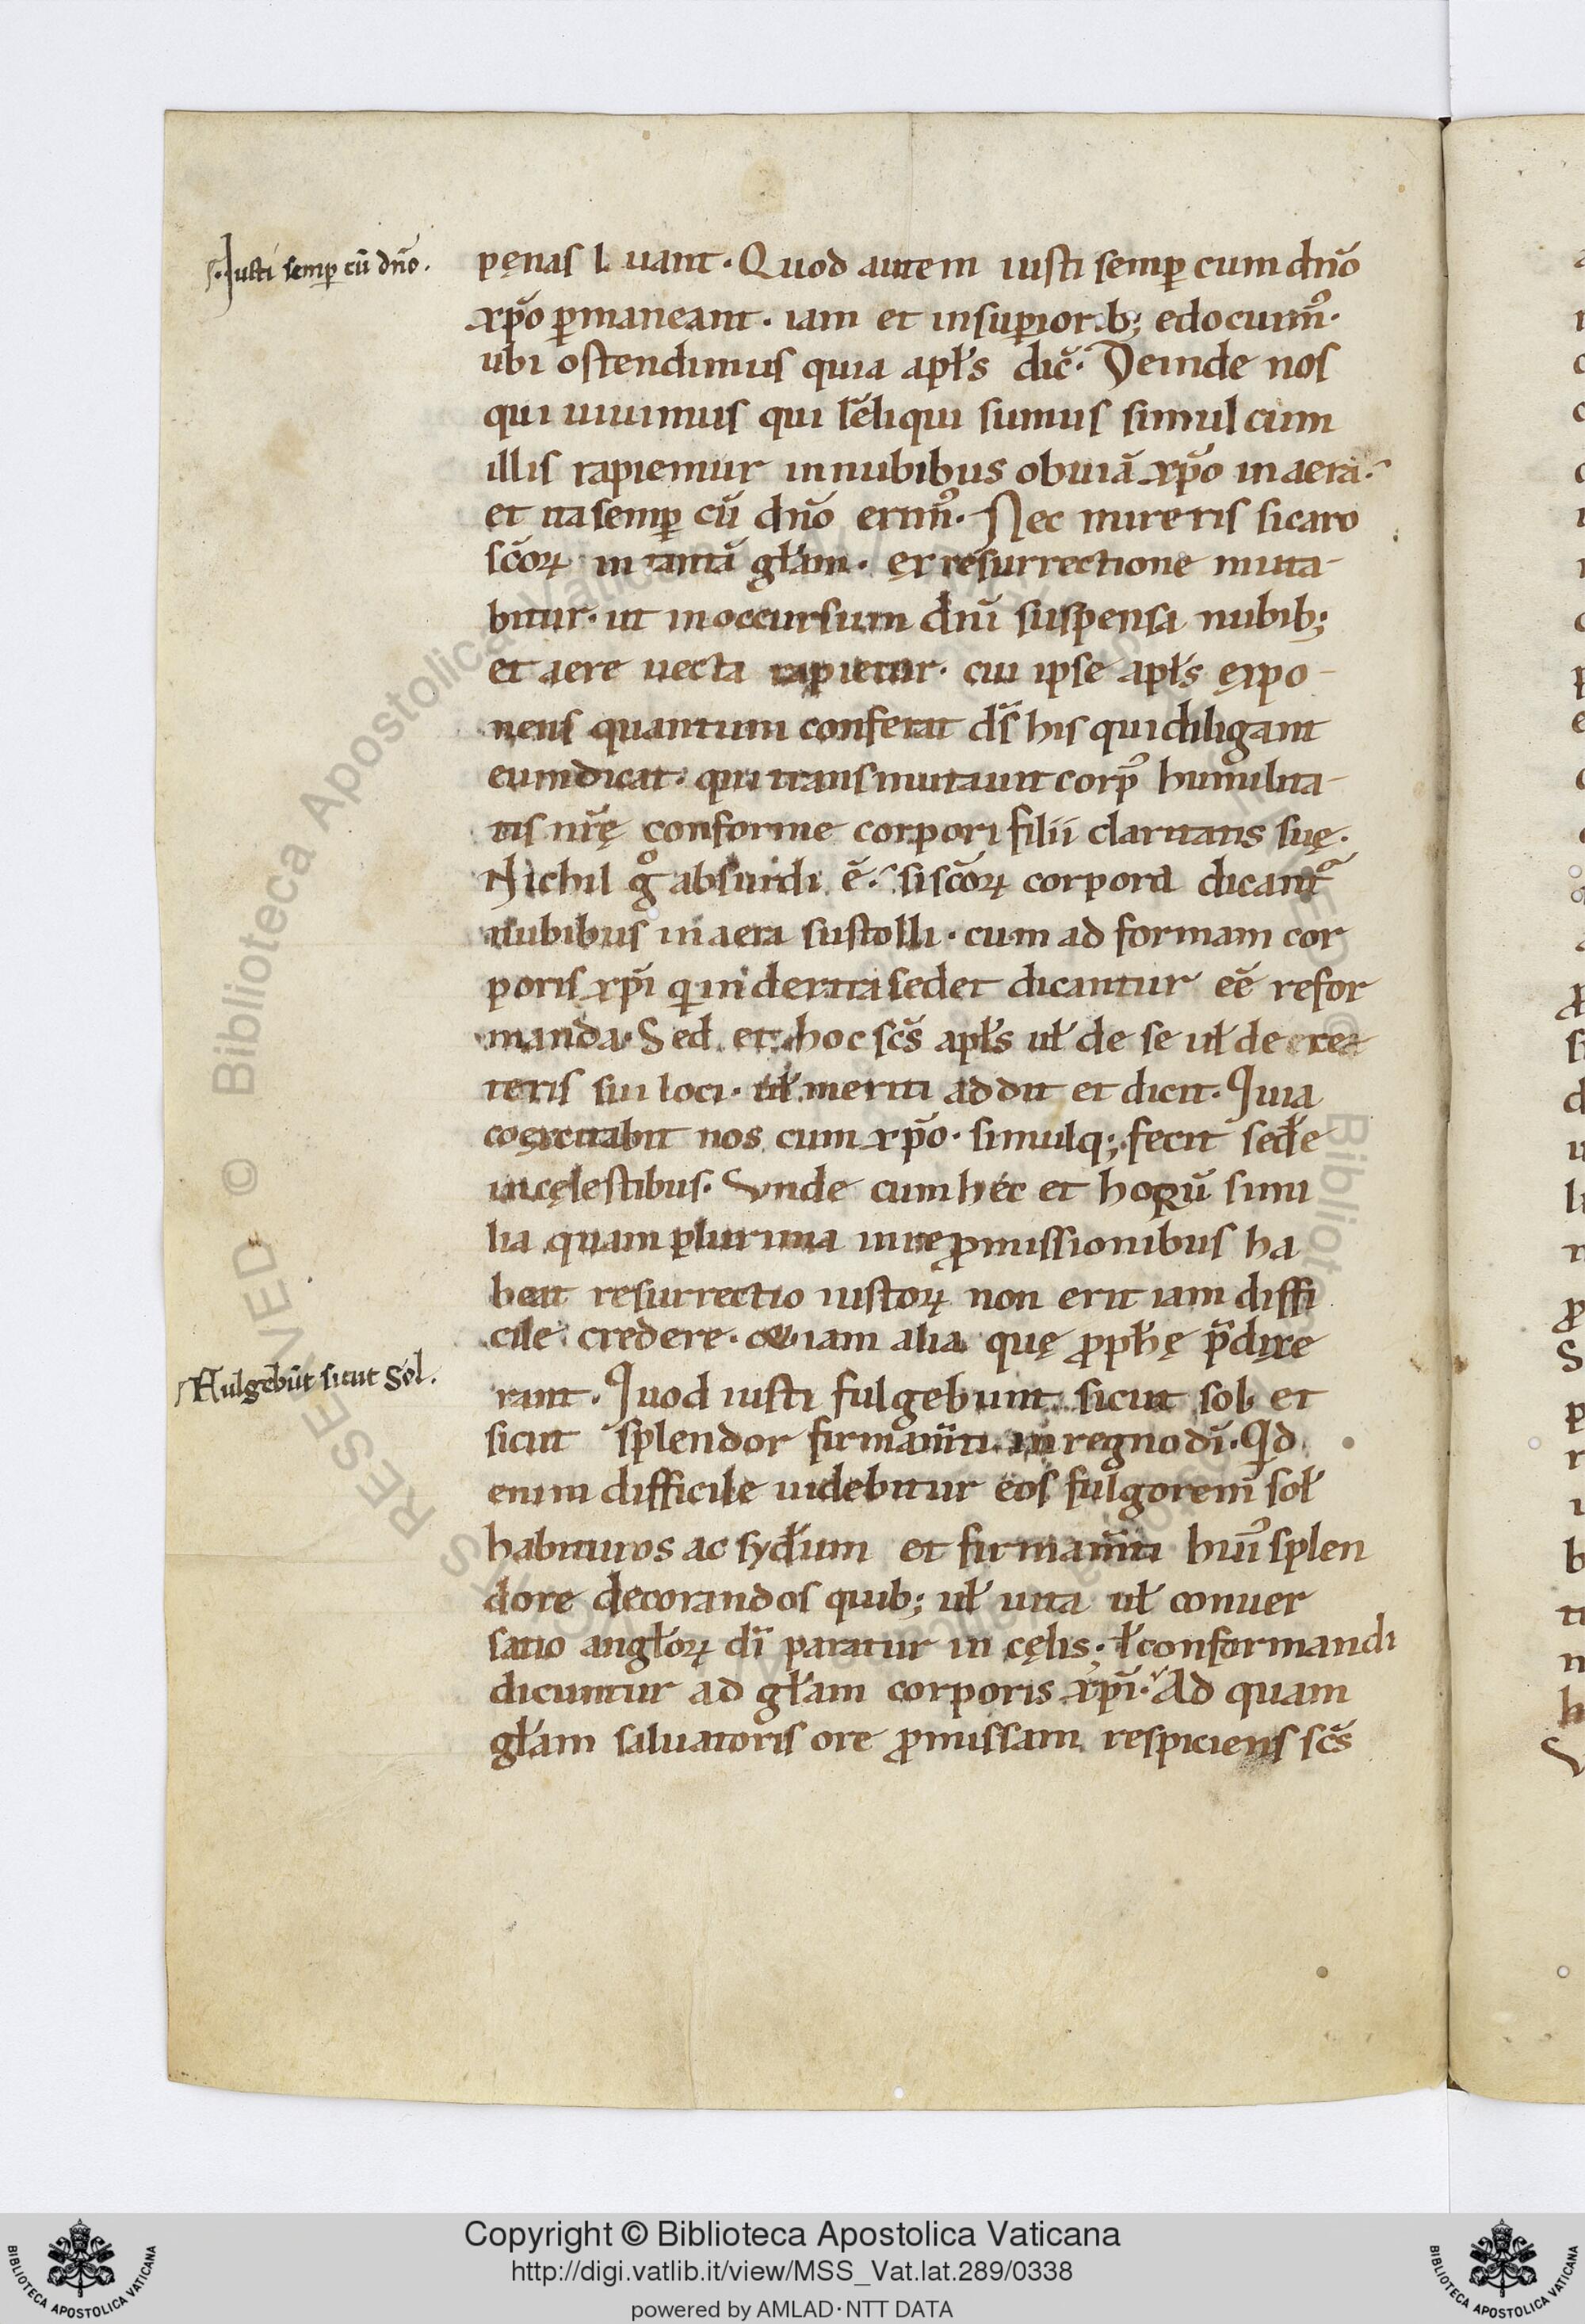 Iusti semp cū dño.
pęnas l uant. Quod autem iusti semp cum dño
xp̃o pmaneant. iam et insuperiorib; edocuim᷒.
ubi ostendimus quia apƚs dic̃. Deinde nos
qui uiuimus qui reliqui sumus simul cum
illis rapiemur innubibus obuiā xp̃o in aera.
et ita semp cū dño erim᷒. Nec mireris si caro
sc̃oꝝ in tantā gƚam. ex resurrectione muta-
bitur. ut in occursum dñi suspensa nubib;
et aere uecta rapietur. cui ipse apƚs expo-
nens quantum conferat ds̃ his qui diligant
eum dicat. qui transmutauit corp᷒ humilita-
tis nr̃ę conforme corpori filii claritatis suę.
Nichil gͦ absurdi ē. si sc̃oꝝ corpora dicant᷑
nubibus in aera sustolli. cum ad formam cor
poris xp̃i q in dextra sedet dicantur eē refor
manda. Sed et hoc sc̃s apƚs uƚ de se uƚ de cea
teris sui loci. uƚ meriti addit et dicit. Quia
coexcitabit nos cum xp̃o. simulq; fecit sedƚe
in cęlestibus. Vnde cum hęc et horū simi
lia quam plurima in repromissionibus ha
beat resurrectio iustoꝝ non erit iam diffi
cile credere. iam alia quę ꝓpƚię p̃dixe
Fulgebūt sicut Sol.
rant. Quod iusti fulgebunt sicut sol et
sicut splendor firmam̃ti in regno dī. Qd
enim difficile uidebitur eos fulgorem soƚ
habituros ac sydƚum et firmam̃ti hui᷒ splen
dore decorandos quib; uƚ uita uƚ conuer
satio angƚoꝝ dī paratur in cęlis. ƚ conformandi
dicuntur ad gƚam corporis xp̃i. Ad quam
gƚam saluatoris ore ꝓmissam respiciens sc̃s
Copyright © Biblioteca Apostolica Vaticana
http://digi.vatlib.it/view/MSS_Vat.lat.289/0338
powered by AMLAD·NTT DATA
BIBLIOTECA APOSTOLICA VATICANA
BIBLIOTECA APOSTOLICA VATICANA